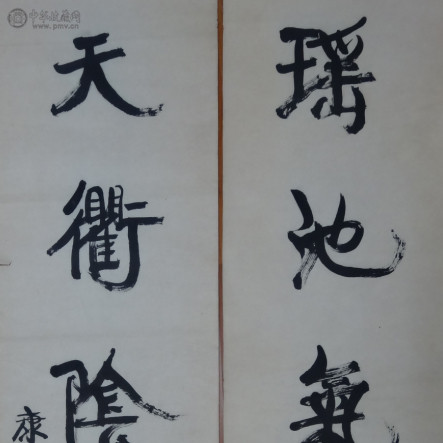 中华收藏网
www.pmv.cn
瑶池氣
天衢陰
康